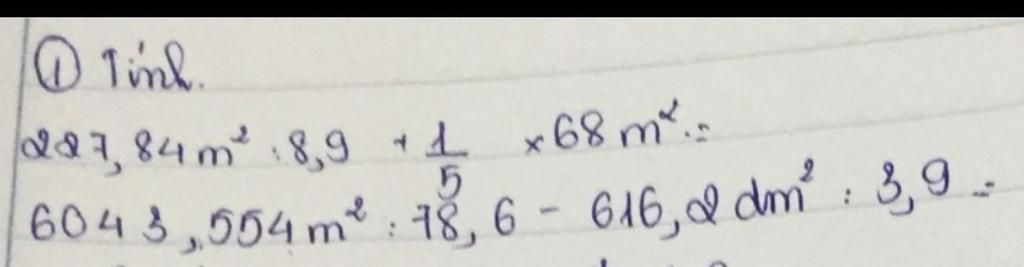 ① Tính.
227,84 m² : 8,9 + 1/5 × 68 m² =
6043,554 m² : 78,6 - 616,2 dm² : 3,9 =